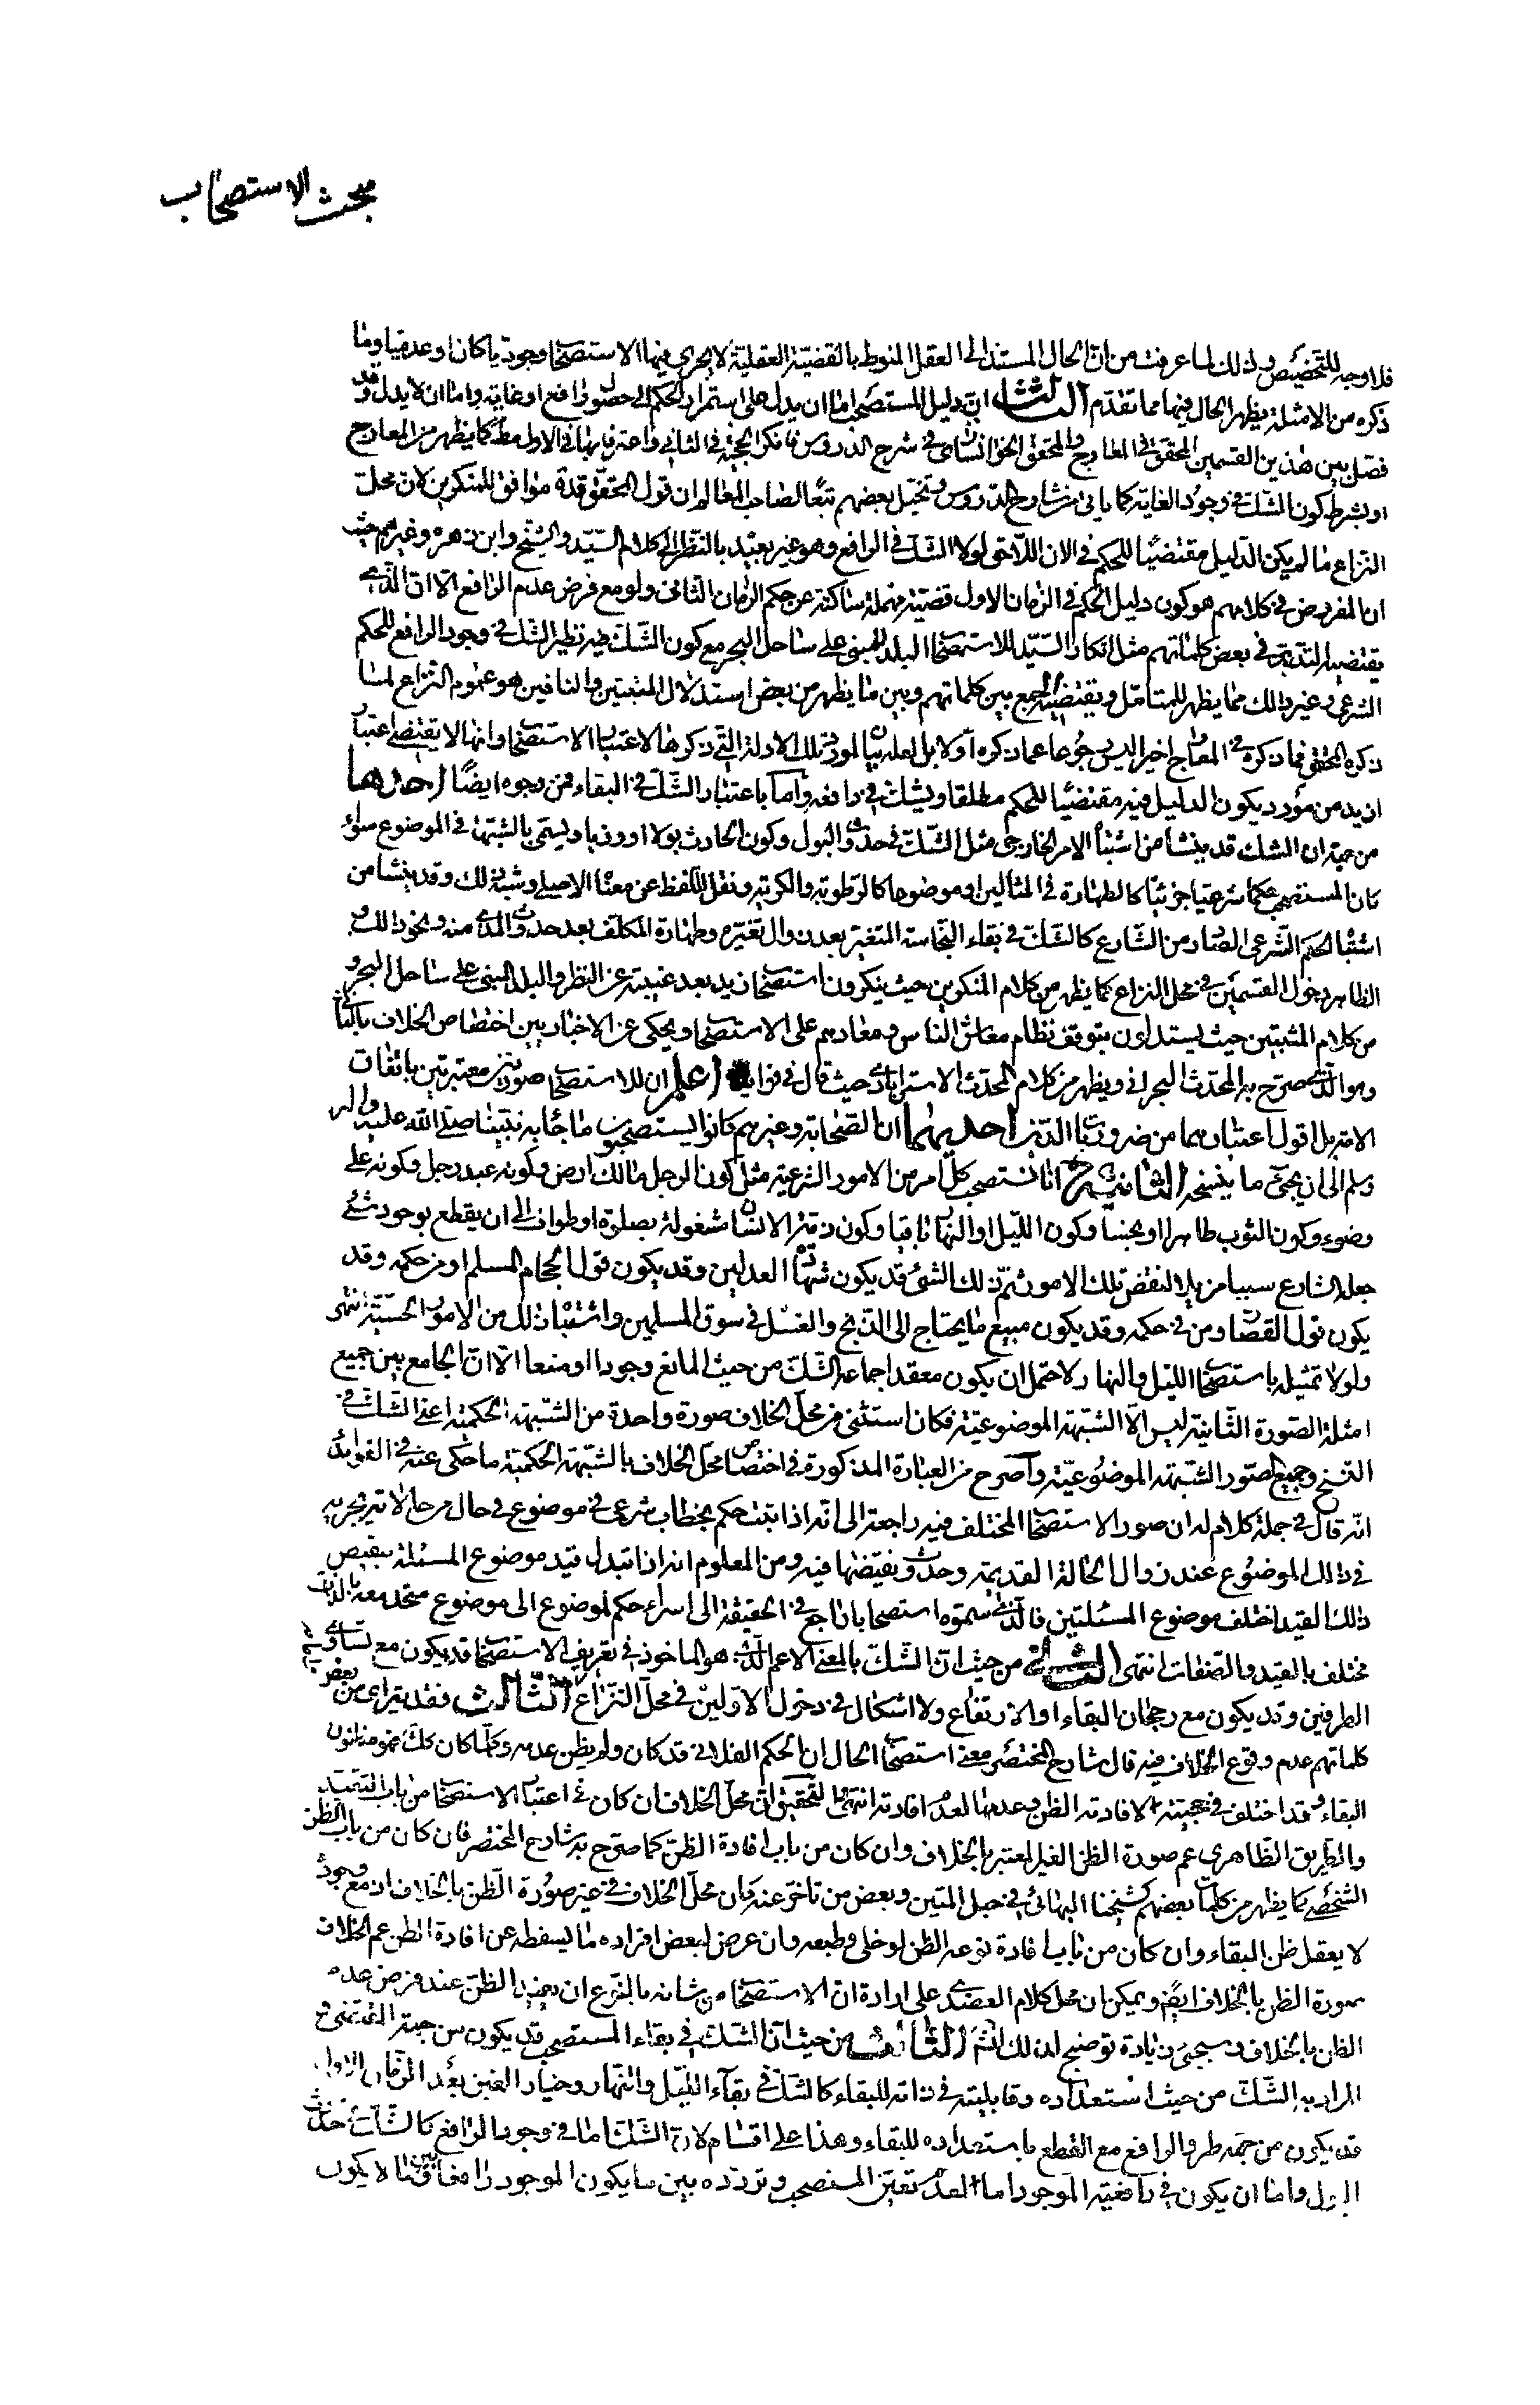 مبحث الاستصحاب
فلا وجه للتخصيص وذلك لما عرفت من ان الحال المستند الى العقل المنوط بالقضية العقلية لا يجرى فيها الاستصحاب وجوديا كان او عدميا وما
ذكره من الامثلة يظهر الحال فيها مما تقدم الثالث ان دليل المستصحب اما ان يدل على استمرار الحكم الى حصول رافع او غاية واما ان لا يدل وقد
فصل بين هذين القسمين المحقق في المعارج والمحقق الخوانسارى في شرح الدروس فانكر الحجية في الثاني واعترفا بها في الاول مط كما يظهر من المعارج
او بشرط كون الشك في وجود الغاية كما ياتى من شارح الدروس وتخيل بعضهم تبعا لصاحب المعالم ان قول المحقق قده موافق للمنكرين لان محل
النزاع ما لم يكن الدليل مقتضيا للحكم في الان اللاحق لولا الشك في الرافع وهو غير بعيد بالنظر الى كلام السيد والشيخ وابن زهره وغيرهم حيث
ان المفروض في كلامهم هو كون دليل الحكم في الزمان الاول قضية مهملة ساكتة عن حكم الزمان الثانى ولو مع فرض عدم الرافع الا ان الذى
يقتضيه التدبر في بعض كلماتهم مثل انكار السيد للاستصحاب البلد المبنى على ساحل البحر مع كون الشك فيه نظير الشك في وجود الرافع للحكم
الشرعى وغير ذلك مما يظهر للمتامل ويقتضيه الجمع بين كلماتهم وبين ما يظهر من بعض استدلال المثبتين والنافين هو عموم النزاع لما
ذكره المحقق فما ذكره في المعارج اخيرا ليس رجوعا عما ذكره اولا بل لعله بيان لمورد تلك الادلة التى ذكرها لاعتبار الاستصحاب وانها لا يقتضى اعتبار
ازيد من مورد يكون الدليل فيه مقتضيا للحكم مطلقا ويشك في رافعه واما باعتبار الشك في البقاء فمن وجوه ايضا احدها
من جهة ان الشك قد ينشا من اشتباه الامر الخارجى مثل الشك في حدوث البول وكون الحادث بولا او وذيا ويسمى بالشبهة في الموضوع سواء
كان المستصحب حكما شرعيا جزئيا كالطهارة في المثالين او موضوعا كالرطوبة والكرية ونقل اللفظ عن معناه الاصلى وشبه ذلك وقد ينشا من
اشتباه الحكم الشرعى الصادر من الشارع كالشك في بقاء النجاسة المتغير بعد زوال تغيره وطهارة المكلف بعد حدوث المذى منه ونحو ذلك و
الظاهر دخول القسمين في محل النزاع كما يظهر من كلام المنكرين حيث ينكرون استصحاب زيد بعد غيبته عن النظر والبلد المبنى على ساحل البحر و
من كلام المثبتين حيث يستدلون بتوقف نظام معاش الناس ومعادهم على الاستصحاب ويحكى عن الاخباريين اختصاص الخلاف بالثانى
وهو الذى صرح به المحدث البحرانى ويظهر من كلام المحدث الاسترابادى حيث قال في فوايده اعلم ان للاستصحاب صورتين معتبرتين باتفاق
الامة بل اقول اعتبارهما من ضروريات الدين احديهما ان الصحابة وغيرهم كانوا يستصحبون ما جاء به نبينا صلى الله عليه واله
وسلم الى ان يجئ ما ينسخه الثانية انا نستصحب كل امر من الامور الشرعية مثل كون الرجل مالك ارض وكونه عبد رجل وكونه على
وضوء وكون الثوب طاهرا او نجسا وكون الليل او النهار باقيا وكون ذمة الانسان مشغولة بصلوة او طواف الى ان يقطع بوجود شئ
جعله الشارع سببا مزيلا لنقض تلك الامور ثم ذلك الشئ قد يكون شهادة العدلين وقد يكون قول الحجام المسلم او من حكمه وقد
يكون قول القصار او من في حكمه وقد يكون مبيع ما يحتاج الى الذبح والغسل في سوق المسلمين واشباه ذلك من الامور الحسية انتهى
ولولا تمثيله باستصحاب الليل والنهار لاحتمل ان يكون معقد اجماعه الشك من حيث المانع وجودا او منعا الا ان الجامع بين جميع
امثلة الصورة الثانية ليس الا الشبهة الموضوعية فكان استثنى من محل الخلاف صورة واحدة من الشبهة الحكمية اعنى الشك في
النسخ وجميع صور الشبهة الموضوعية واصرح من العبارة المذكورة في اختصاص محل الخلاف بالشبهة الحكمية ما حكى عنه في الفوائد
انه قال في جملة كلام له ان صور الاستصحاب المختلف فيه راجعة الى انه اذا ثبت حكم بخطاب شرعى في موضوع في حال من حالاته نجريه
في ذلك الموضوع عند زوال الحالة القديمة وحدوث نقيضها فيه ومن المعلوم انه اذا تبدل قيد موضوع المسئلة بنقيض
ذلك القيد اختلف موضوع المسئلتين فالذى سموه استصحابا راجع في الحقيقة الى اسراء حكم لموضوع الى موضوع متحد معه بالذات
مختلف بالقيد والصفات انتهى الثانى من حيث ان الشك بالمعنى الاعم الذى هو الماخوذ في تعريف الاستصحاب قد يكون مع تساوى
الطرفين وقد يكون مع رجحان البقاء او الارتفاع ولا اشكال في دخول الاولين في محل النزاع واما الثالث فقد يتراءى من بعض
كلماتهم عدم وقوع الخلاف فيه قال شارح المختصر معنى استصحاب الحال ان الحكم الفلانى قد كان ولم يظن عدمه وكلما كان كك فهو مظنون
البقاء وقد اختلف في حجيته لافادته الظن وعدمها لعدم افادته انتهى والتحقيق ان محل الخلاف ان كان في اعتبار الاستصحاب من باب التعبد
والطريق الظاهرى عم صورة الظن الغير المعتبر بالخلاف وان كان من باب افادة الظن كما صرح به شارح المختصر فان كان من باب الظن
الشخصى كما يظهر من كلمات بعضهم كشيخنا البهائى في حبل المتين وبعض من تاخر عنه كان محل الخلاف في غير صورة الظن بالخلاف اذ مع وجوده
لا يعقل ظن البقاء وان كان من باب افادة نوعه الظن لو خلى وطبعه وان عرض لبعض افراده ما يسقطه عن افادة الظن عم الخلاف
صورة الظن بالخلاف ايضا ويمكن ان يحمل كلام العضدى على ارادة ان الاستصحاب من شانه بالنوع ان يفيد الظن عند فرض عدم
الظن بالخلاف وسيجئ زيادة توضيح لذلك انشاء الثالث من حيث ان الشك في بقاء المستصحب قد يكون من جهة المقتضى و
المراد به الشك من حيث استعداده وقابليته في ذاته للبقاء كالشك في بقاء الليل والنهار وخيار الغبن بعد الزمان الاول
قد يكون من جهة طرو الرافع مع القطع باستعداده للبقاء وهذا على اقسام لان الشك اما في وجود الرافع كالشك في حدوث
البول واما ان يكون في رافعية الموجود اما لعدم تعين المستصحب وتردده بين ما يكون الموجود رافعا وبين ما لا يكون